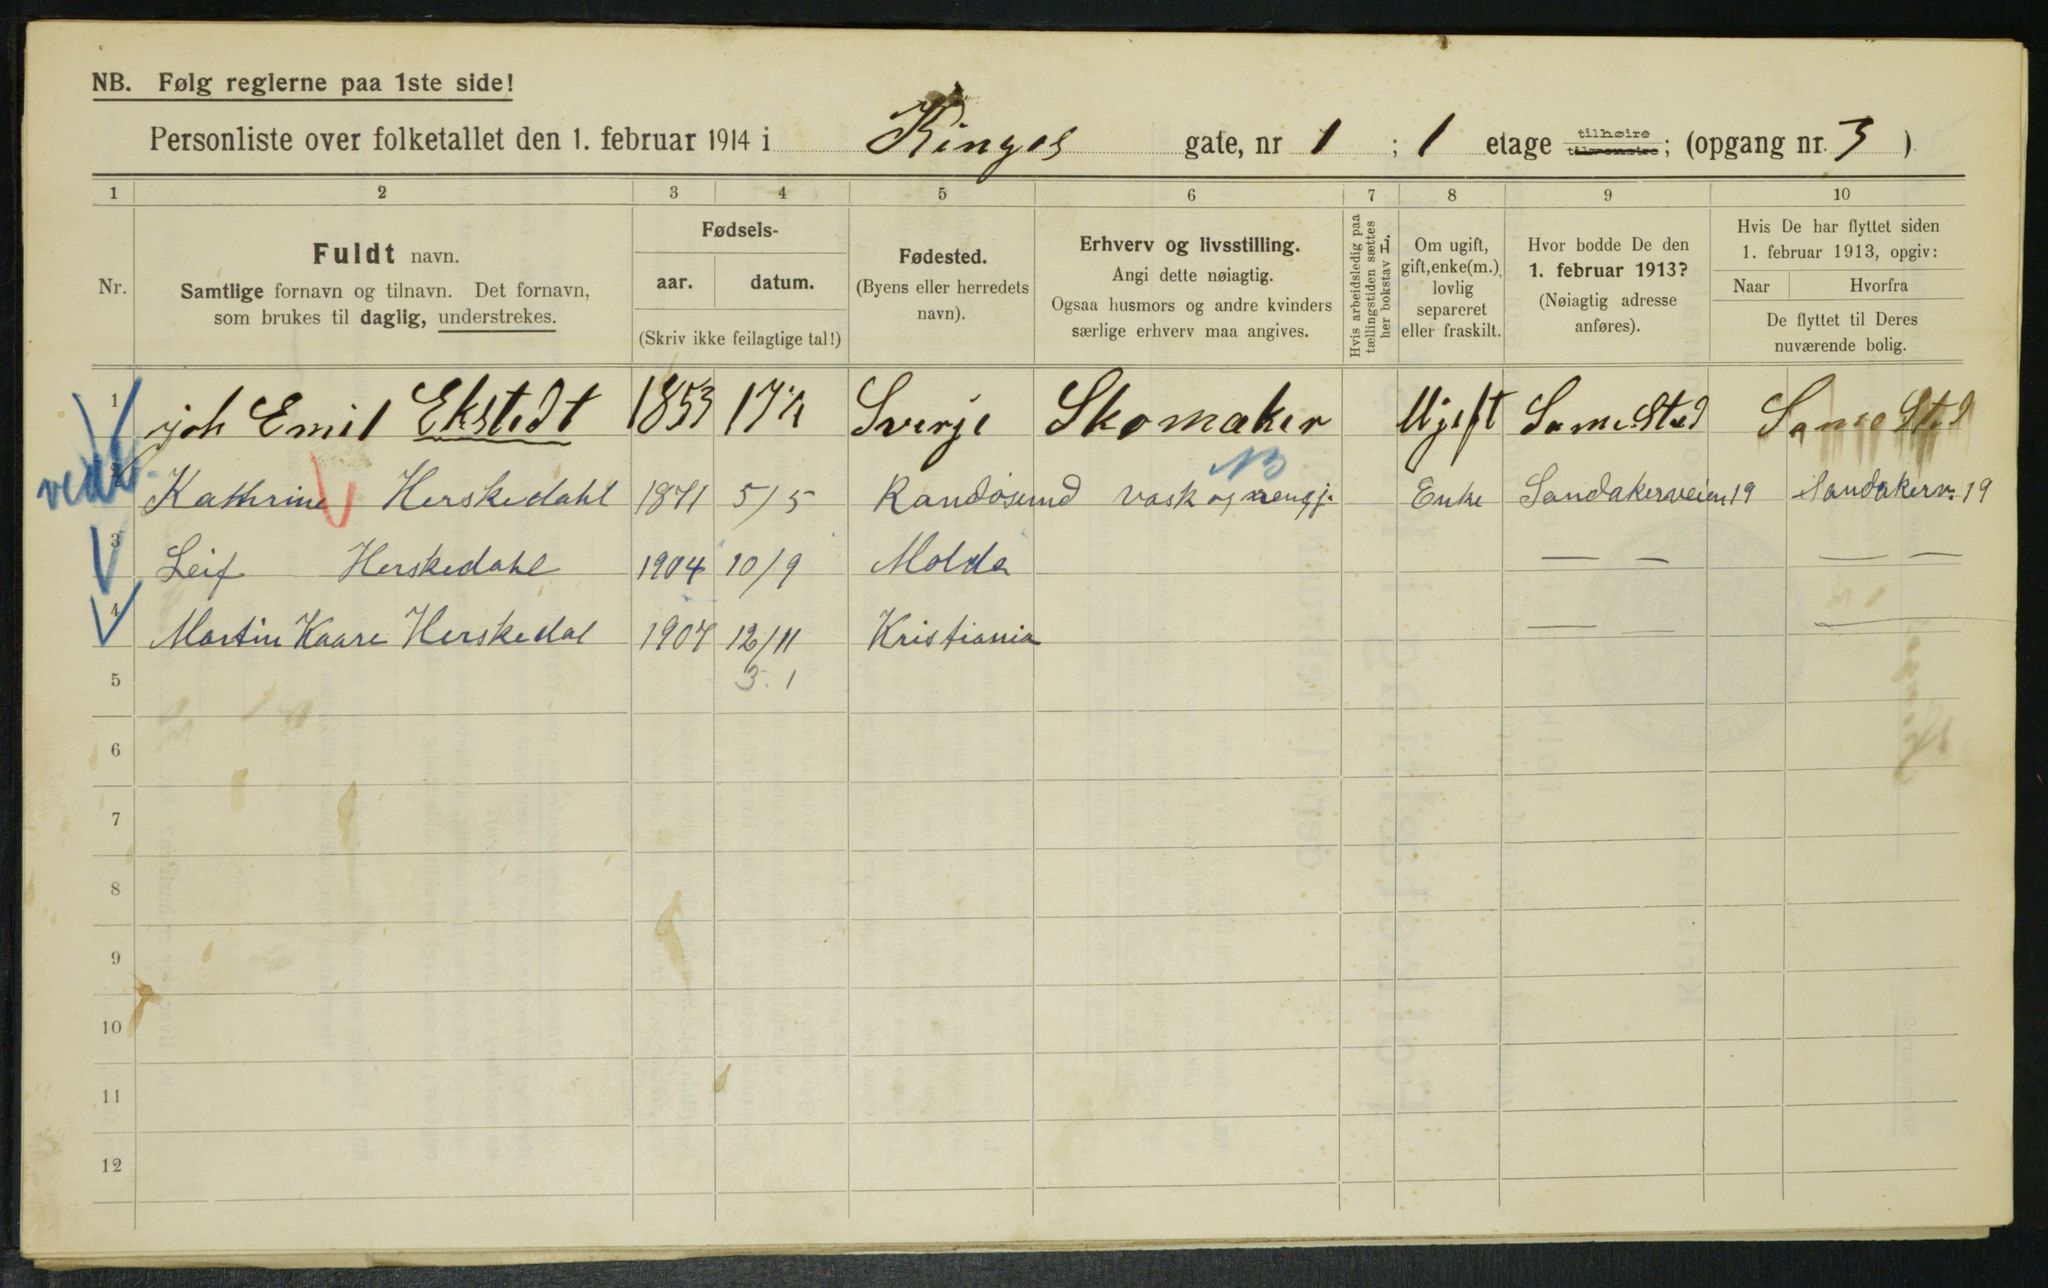 NB. Følg reglerne paa 1ste side!
Personliste over folketallet den 1. februar 1914 i Ringes gate, nr 1 ; 1 etage tilhøire tilvenstre; (opgang nr. 3 )
1 2 3 4 5 6 7 8 9 10
Nr.
Fuldt navn.
Samtlige fornavn og tilnavn. Det fornavn,
som brukes til daglig, understrekes.
Fødsels-
aar. datum.
(Skriv ikke feilagtige tal!)
Fødested.
(Byens eller herredets
navn).
Erhverv og livsstilling.
Angi dette nøiagtig.
Ogsaa husmors og andre kvinders
særlige erhverv maa angives.
Hvis arbeidsledig paa
tællingstiden sættes
her bokstav H.
Om ugift,
gift, enke(m.),
lovlig
separeret
eller fraskilt.
Hvor bodde De den
1. februar 1913?
(Nøiagtig adresse
anføres).
Hvis De har flyttet siden
1. februar 1913, opgiv:
Naar Hvorfra
De flyttet til Deres
nuværende bolig.
1 joh Emil Ekstedt 1853 Sverje Skomaker Ugift Same Sted Same Sted
NB
2 Kathrine Herskedahl 1871 5/5 Randøsund vask og rengj. Enke Sandakerveien 19 Sandakerv. 19
3 Leif Herskedahl 1904 10/9 Molde — — — —
4 Martin Kaare Herskedal 1907 12/11 Kristiania — —
5 3. 1
6
7
8
9
10
11
12